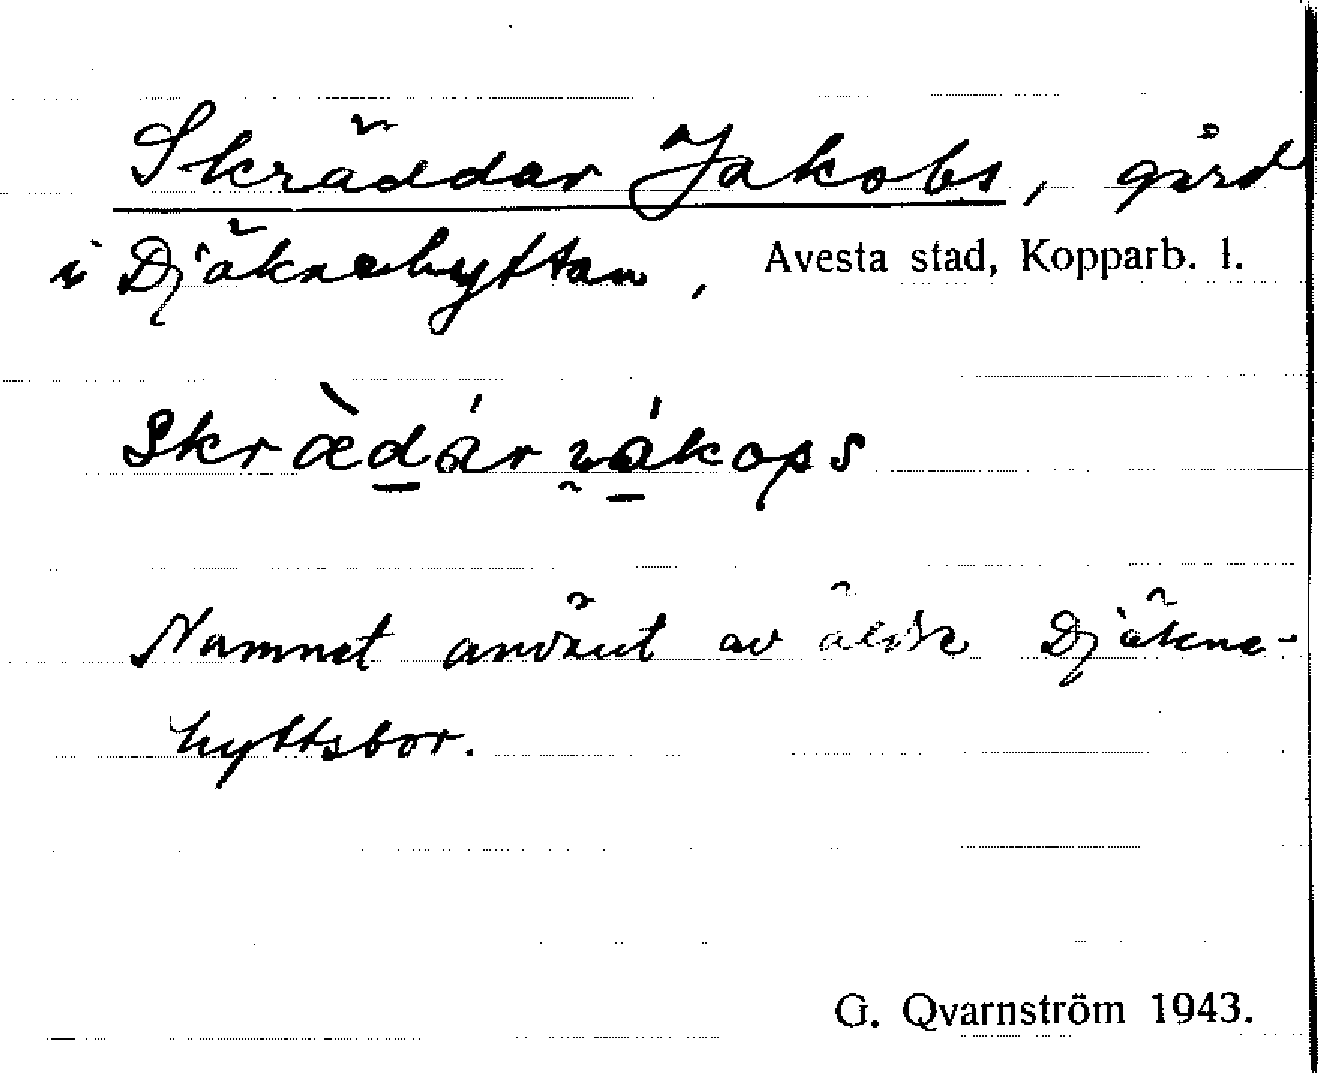 Skräddar Jakobs, gård
i Djäknehyttan, Avesta stad, Kopparb. l.
Namnet använt av äldre Djäkne-
hyttsbor.
G. Qvarnström 1943.